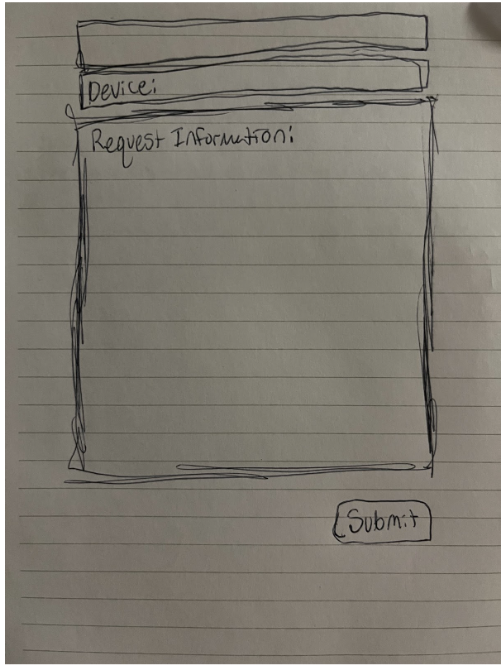 Device:
Request Information:
Submit